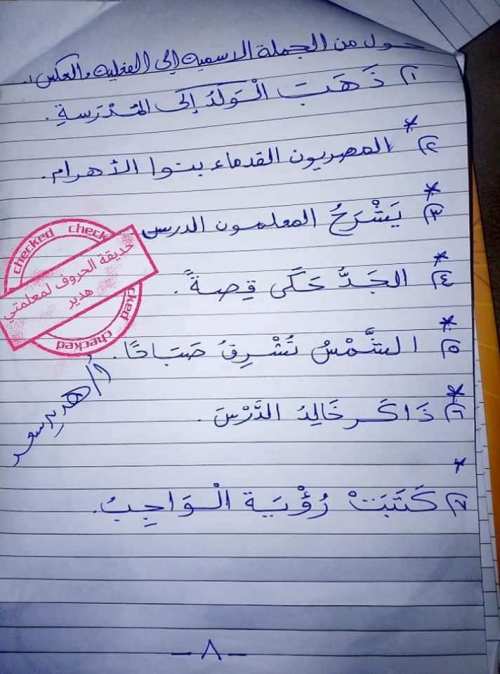 حول من الجملة الاسمية إلى الفعلية والعكس:
١) ذَهَبَ الْوَلَدُ إِلَى المَدْرَسةِ.
٢) المصريون القدماء بنوا الأهرام.
٣) يَشْرَحُ المعلمون الدرس
٤) الجَدُّ حَكَى قِصةً.
٥) الشَّمْسُ تُشْرِقُ صَبَاحًا.
٦) ذَاكَر خَالِدُ الدَّرْسَ.
٧) كَتَبَتْ رُؤْيَة الْوَاجِبُ.
checked checked
حديقة الحروف لمعلمتي
هدير
checked
أ/ هدير سعد
- ٨ -